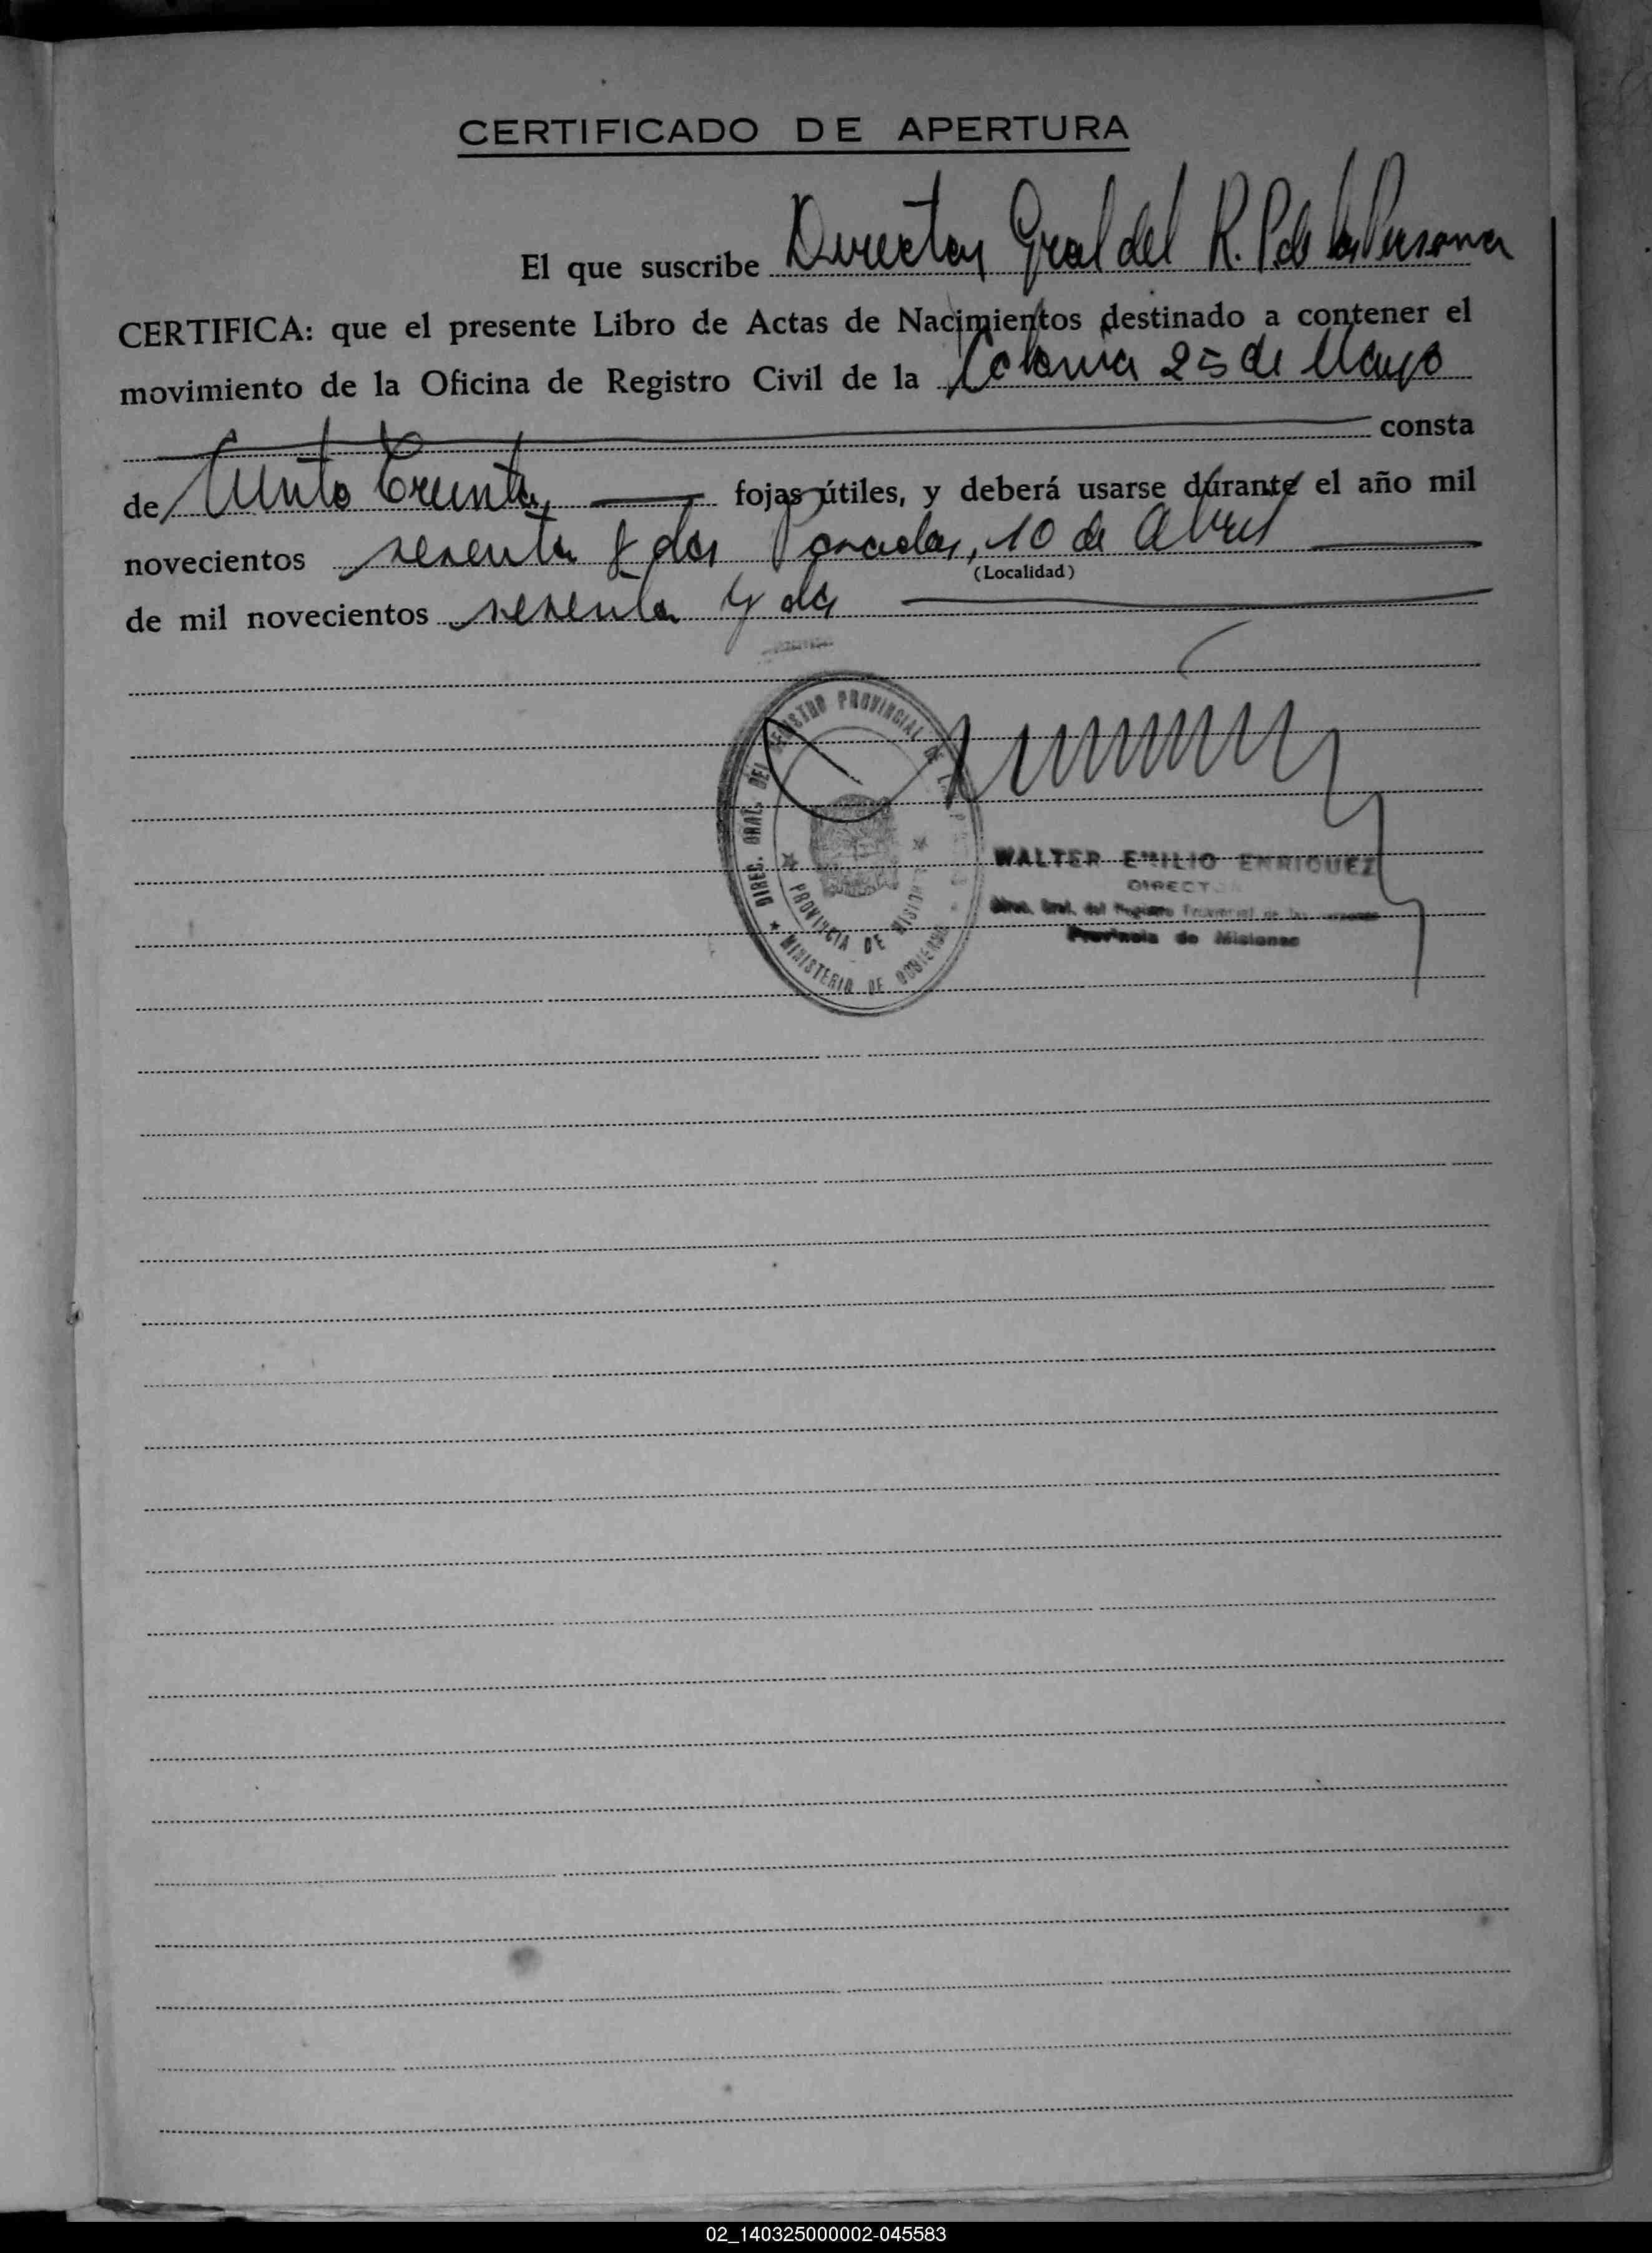 CERTIFICADO DE APERTURA
El que suscribe Director Gral del R. P. de las Personas
CERTIFICA: que el presente Libro de Actas de Nacimientos destinado a contener el
movimiento de la Oficina de Registro Civil de la Colonia 25 de Mayo
consta
de Ciento treinta fojas útiles, y deberá usarse durante el año mil
novecientos sesenta y dos Posadas, 10 de Abril
(Localidad)
de mil novecientos sesenta y dos
DIREC. GRAL. DEL REGISTRO PROVINCIAL DE
PROVINCIA DE MISIONES
MINISTERIO DE GOBIERNO
WALTER EMILIO ENRIQUEZ
DIRECTOR
Direc. Gral. del Registro Provincial de las Personas
Provincia de Misiones
02_140325000002-045583